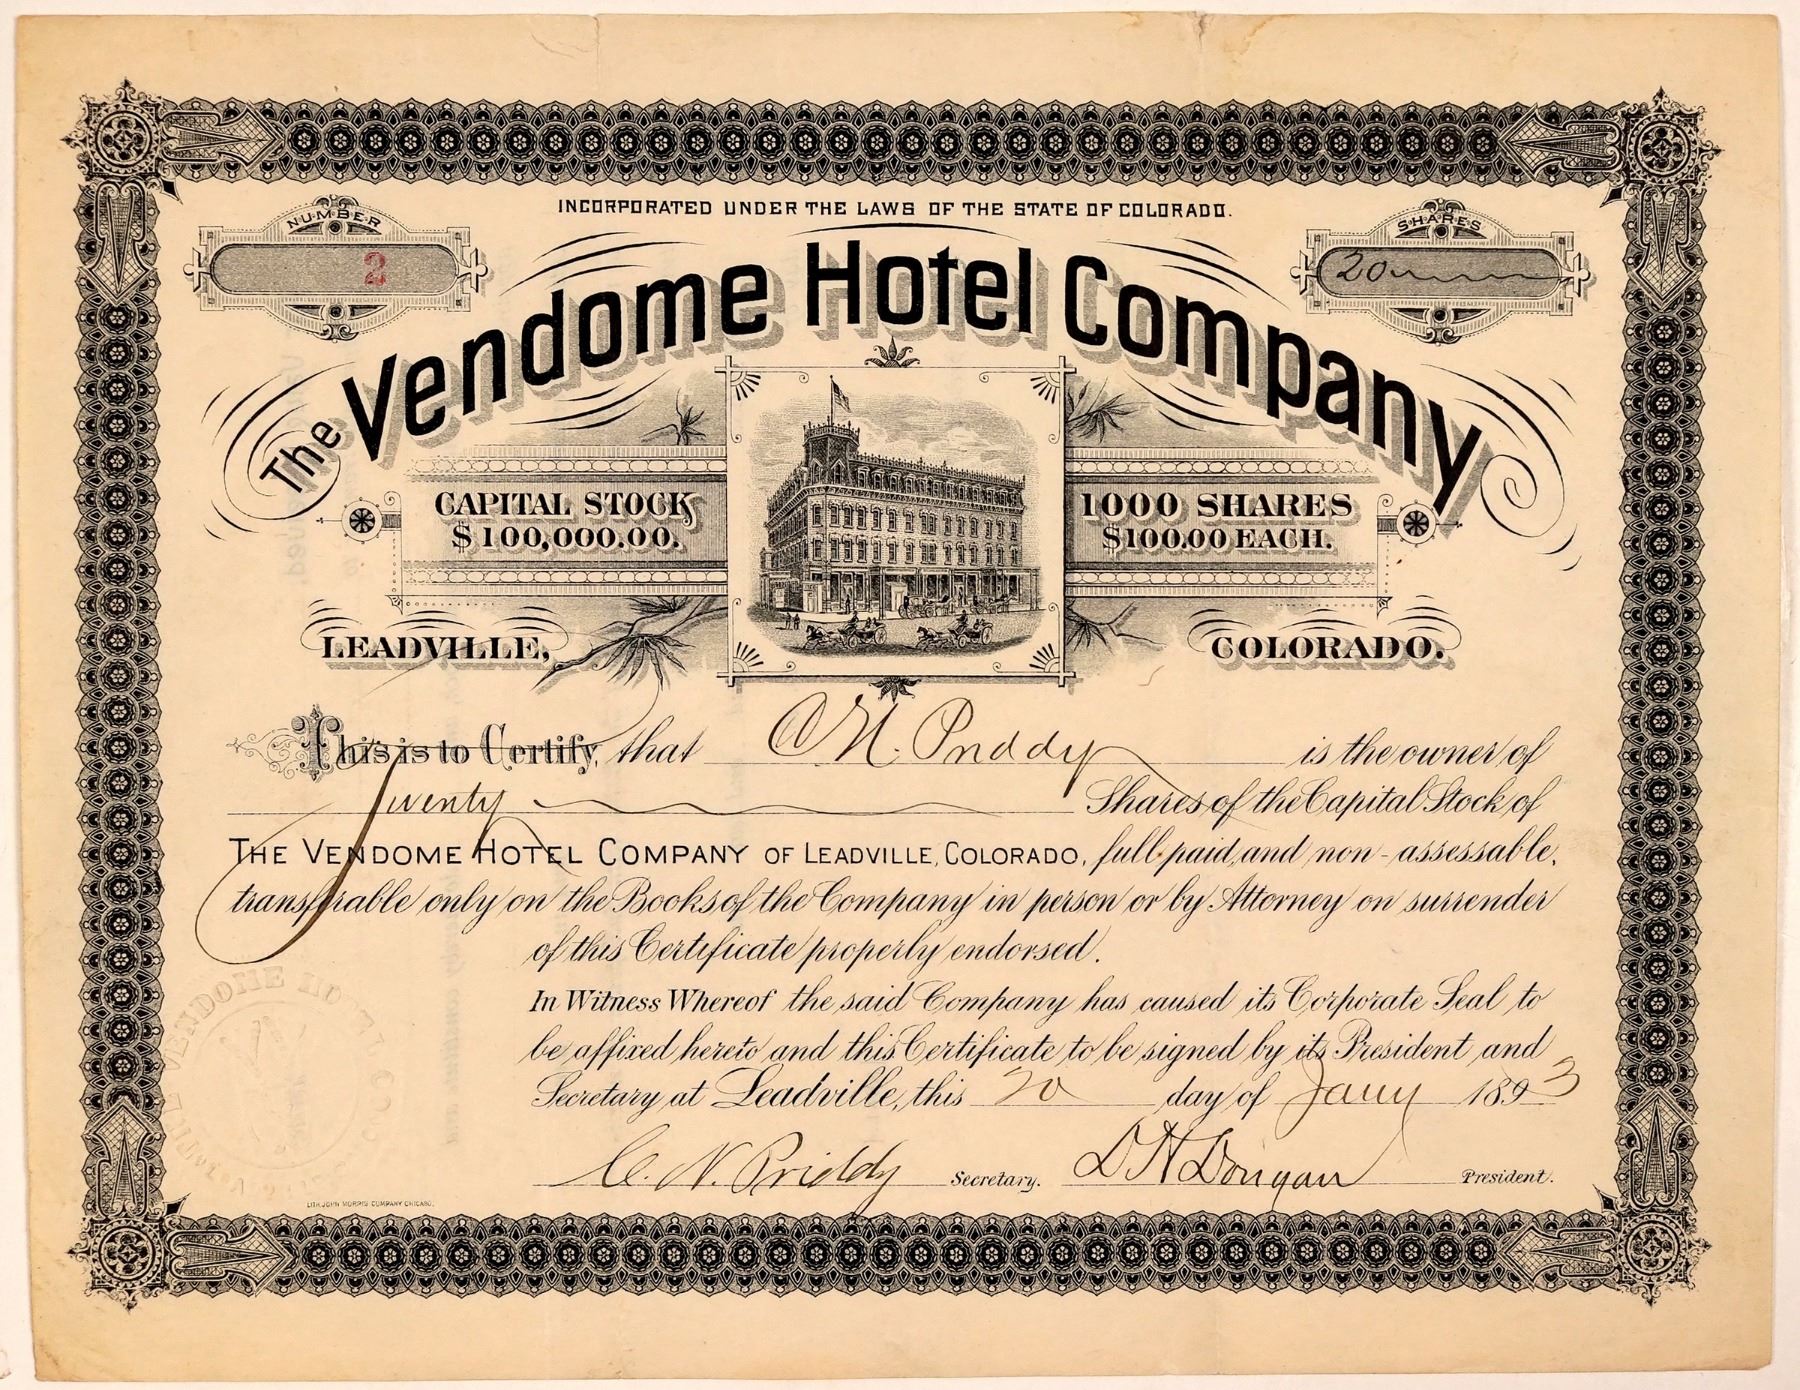 INCORPORATED UNDER THE LAWS OF THE STATE OF COLORADO.
NUMBER
2
SHARES
20
The Vendome Hotel Company
CAPITAL STOCK
$100,000.00.
1000 SHARES
$100.00 EACH.
LEADVILLE,
COLORADO.
This is to Certify, that C. N. Priddy is the owner of
Twenty Shares of the Capital Stock of
THE VENDOME HOTEL COMPANY OF LEADVILLE, COLORADO, full-paid, and non-assessable,
transferable only on the Books of the Company in person or by Attorney on surrender
of this Certificate properly endorsed.
In Witness Whereof the said Company has caused its Corporate Seal to
be affixed hereto and this Certificate to be signed by its President and
Secretary at Leadville, this 20 day of Jany 1893
C. N. Priddy Secretary. D H Dougan President.
VENDOME HOTEL CO.
LITH. JOHN MORRIS COMPANY CHICAGO.